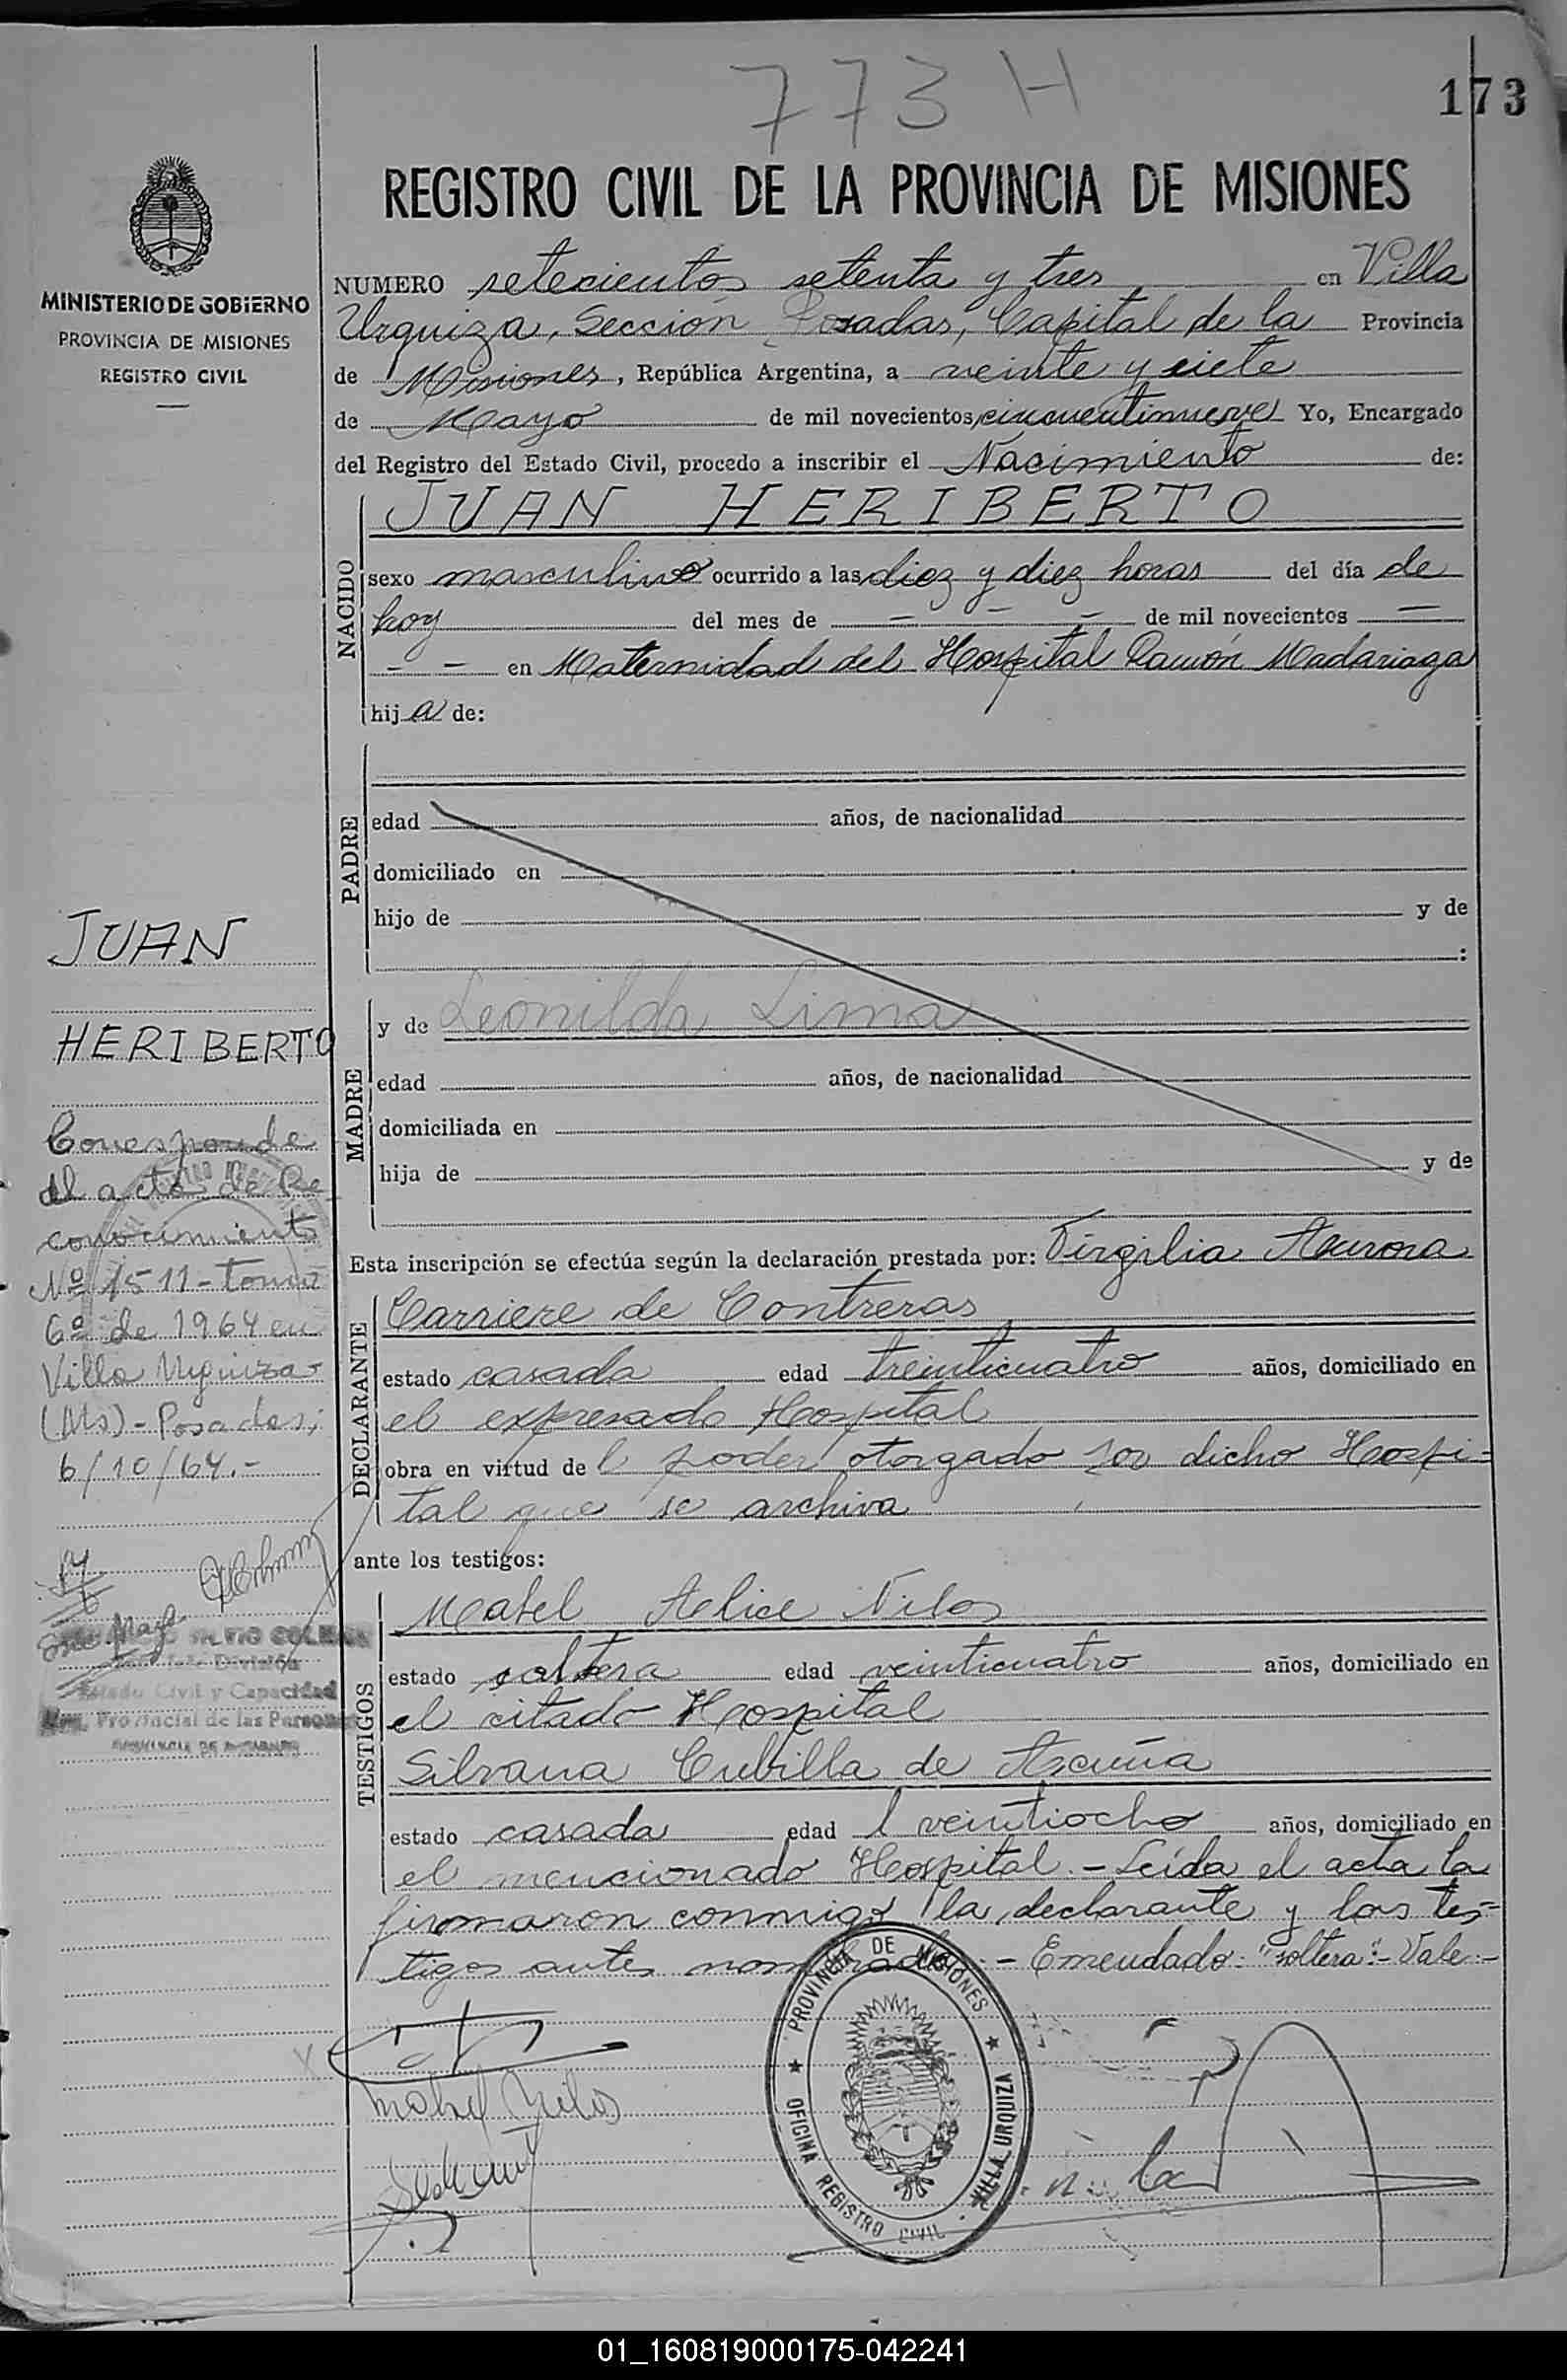 773 H
173
REGISTRO CIVIL DE LA PROVINCIA DE MISIONES
MINISTERIO DE GOBIERNO
PROVINCIA DE MISIONES
REGISTRO CIVIL
NUMERO setecientos setenta y tres en Villa
Urquiza, Sección Posadas, Capital de la Provincia
de Misiones, República Argentina, a veinte y siete
de Mayo de mil novecientos cincuentinueve Yo, Encargado
del Registro del Estado Civil, procedo a inscribir el Nacimiento de:
JUAN HERIBERTO
NACIDO
sexo masculino ocurrido a las diez y diez horas del día de
hoy del mes de — — — de mil novecientos —
— — en Maternidad del Hospital Ramón Madariaga
hija de:
PADRE
edad años, de nacionalidad
domiciliado en
hijo de y de
:
MADRE
y de Leonilda Lima
edad años, de nacionalidad
domiciliada en
hija de y de
JUAN
HERIBERTO
Corresponde
al acta de Re
conocimiento
Nº 1511 - tomo
6º de 1964 en
Villa Urquiza -
(Ms) - Posadas;
6/10/64.-
Esta inscripción se efectúa según la declaración prestada por: Virgilia Aurora
Carriere de Contreras
DECLARANTE
estado casada edad treinticuatro años, domiciliado en
el expresado Hospital
obra en virtud de l poder otorgado por dicho Hospi-
tal que se archiva
ante los testigos:
TESTIGOS
Mabel Alice Nilos
estado soltera edad veinticuatro años, domiciliado en
el citado Hospital
Silvana Cubilla de Acuña
estado casada edad veintiocho años, domiciliado en
el mencionado Hospital.- Leída el acta la
firmaron conmigo la declarante y los tes-
tigos antes nombrados.- Emendado: "soltera".- Vale.-
División
Estado Civil y Capacidad
Provincial de las Personas
PROVINCIA DE MISIONES
Mabel Nilos
PROVINCIA DE MISIONES
OFICINA REGISTRO CIVIL
VILLA URQUIZA
01_160819000175-042241